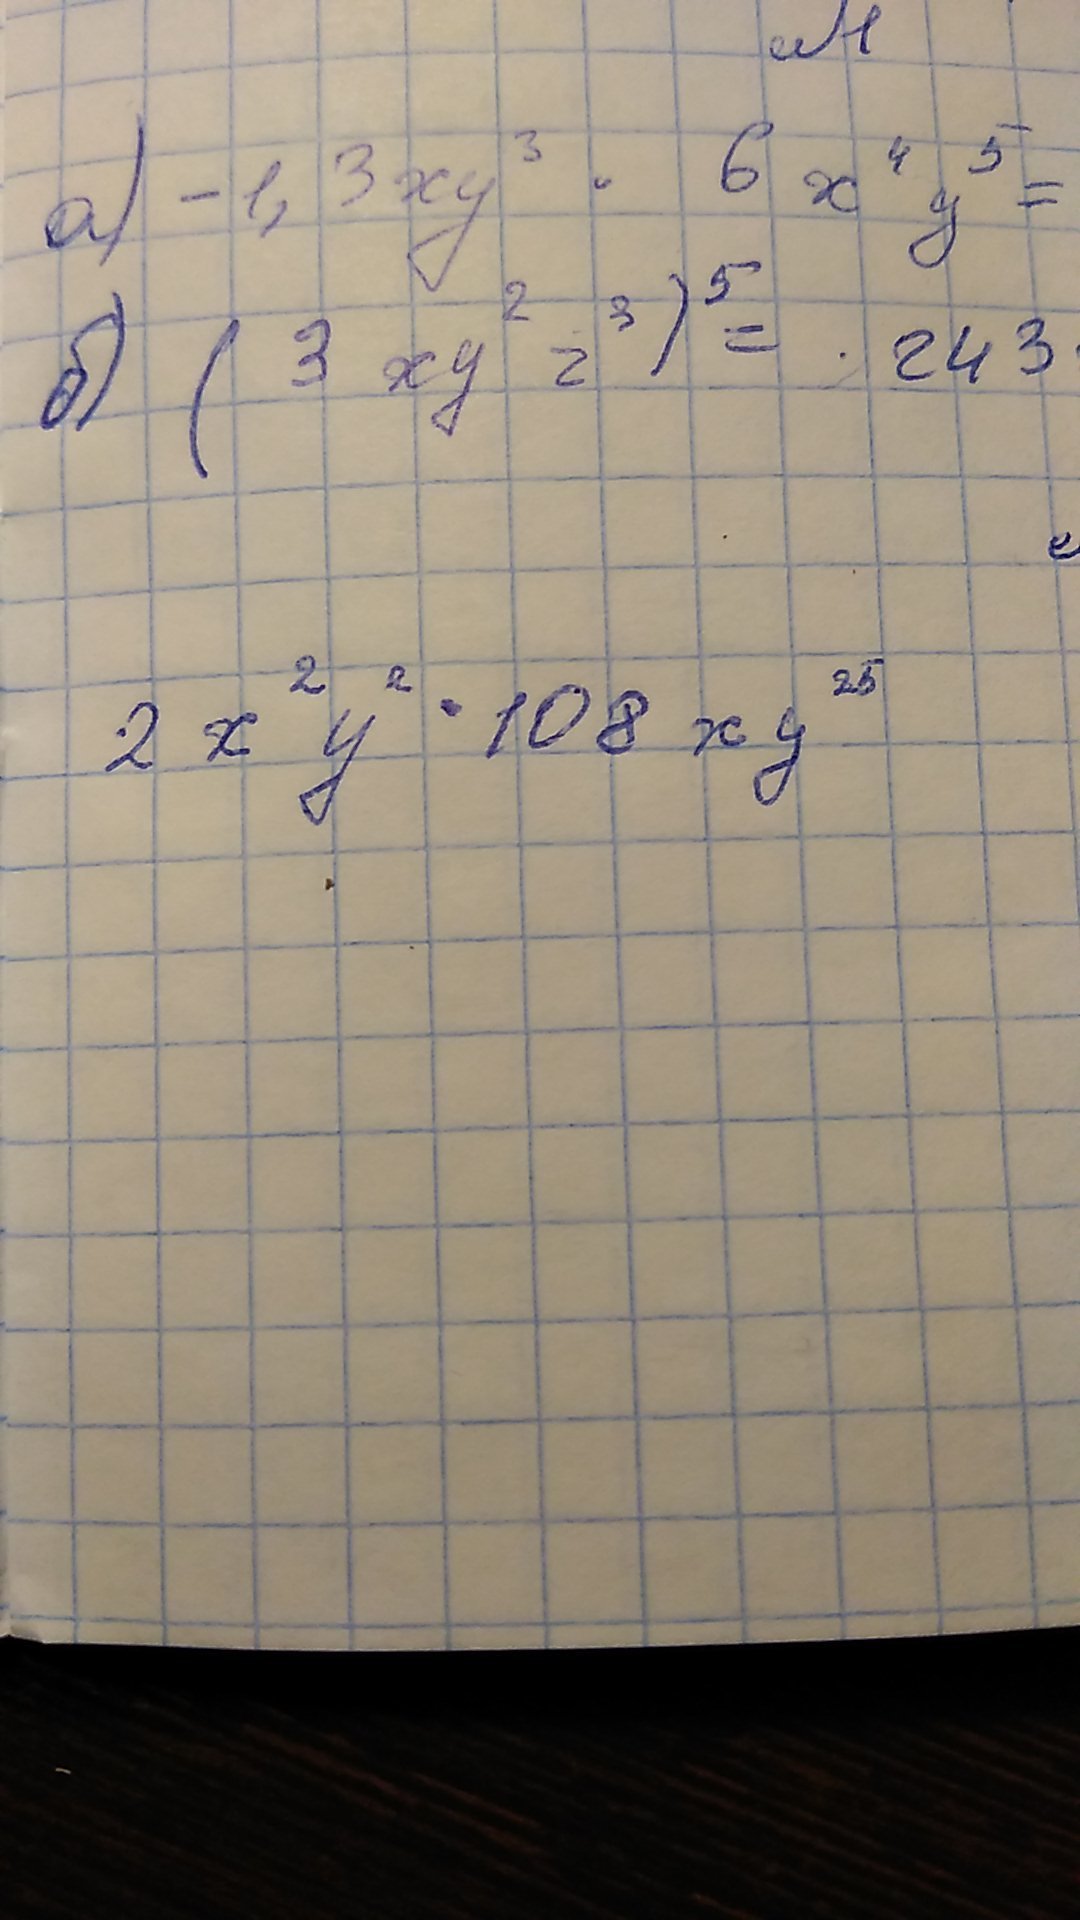 а) -1,3xy³ · 6x⁴y⁵=
б) (3xy²z³)⁵= 243
2x²y² · 108xy²⁵